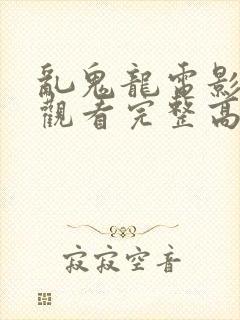 亂鬼龍電影
觀看完整高
寂寂空音